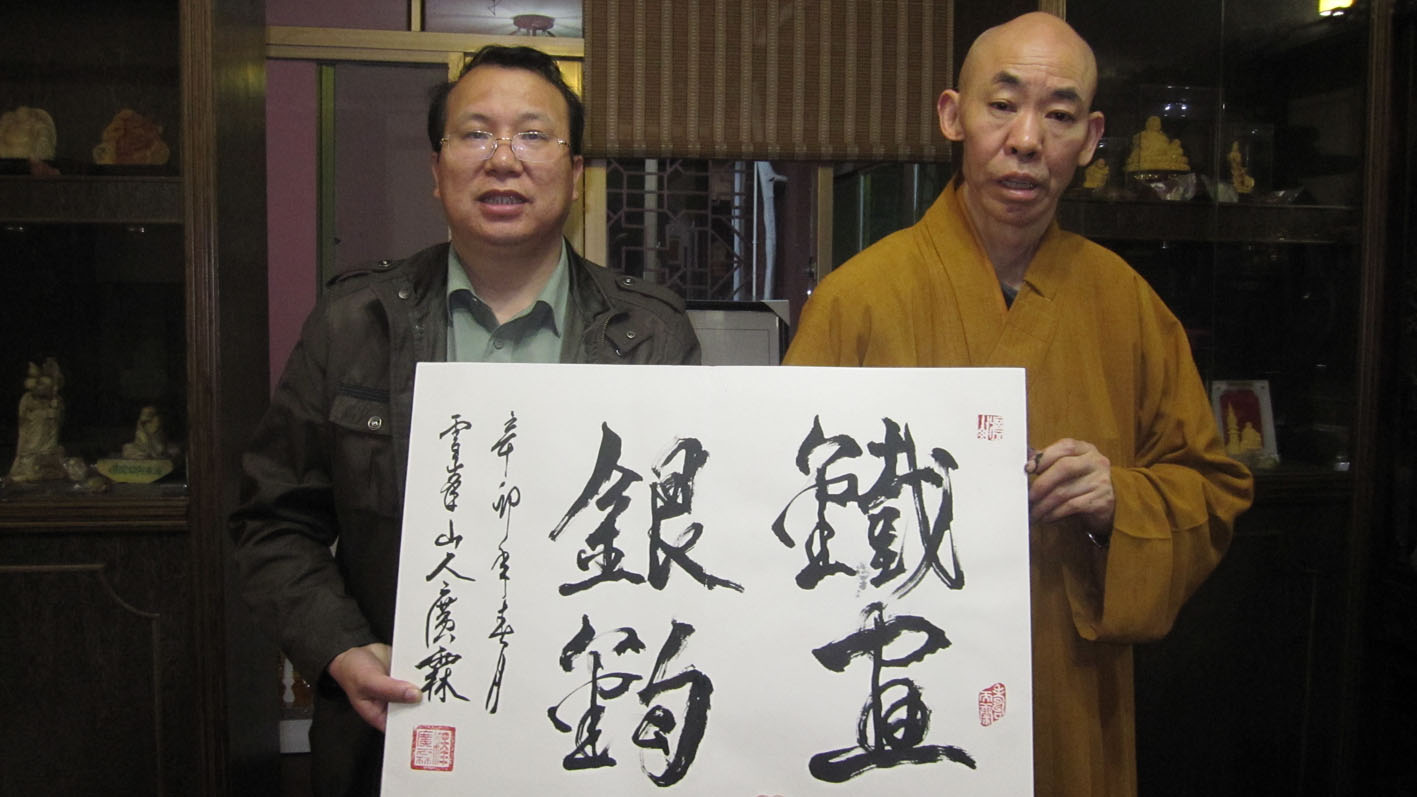 鐵畫
銀鉤
辛卯年春月
雲峯山人廣霖